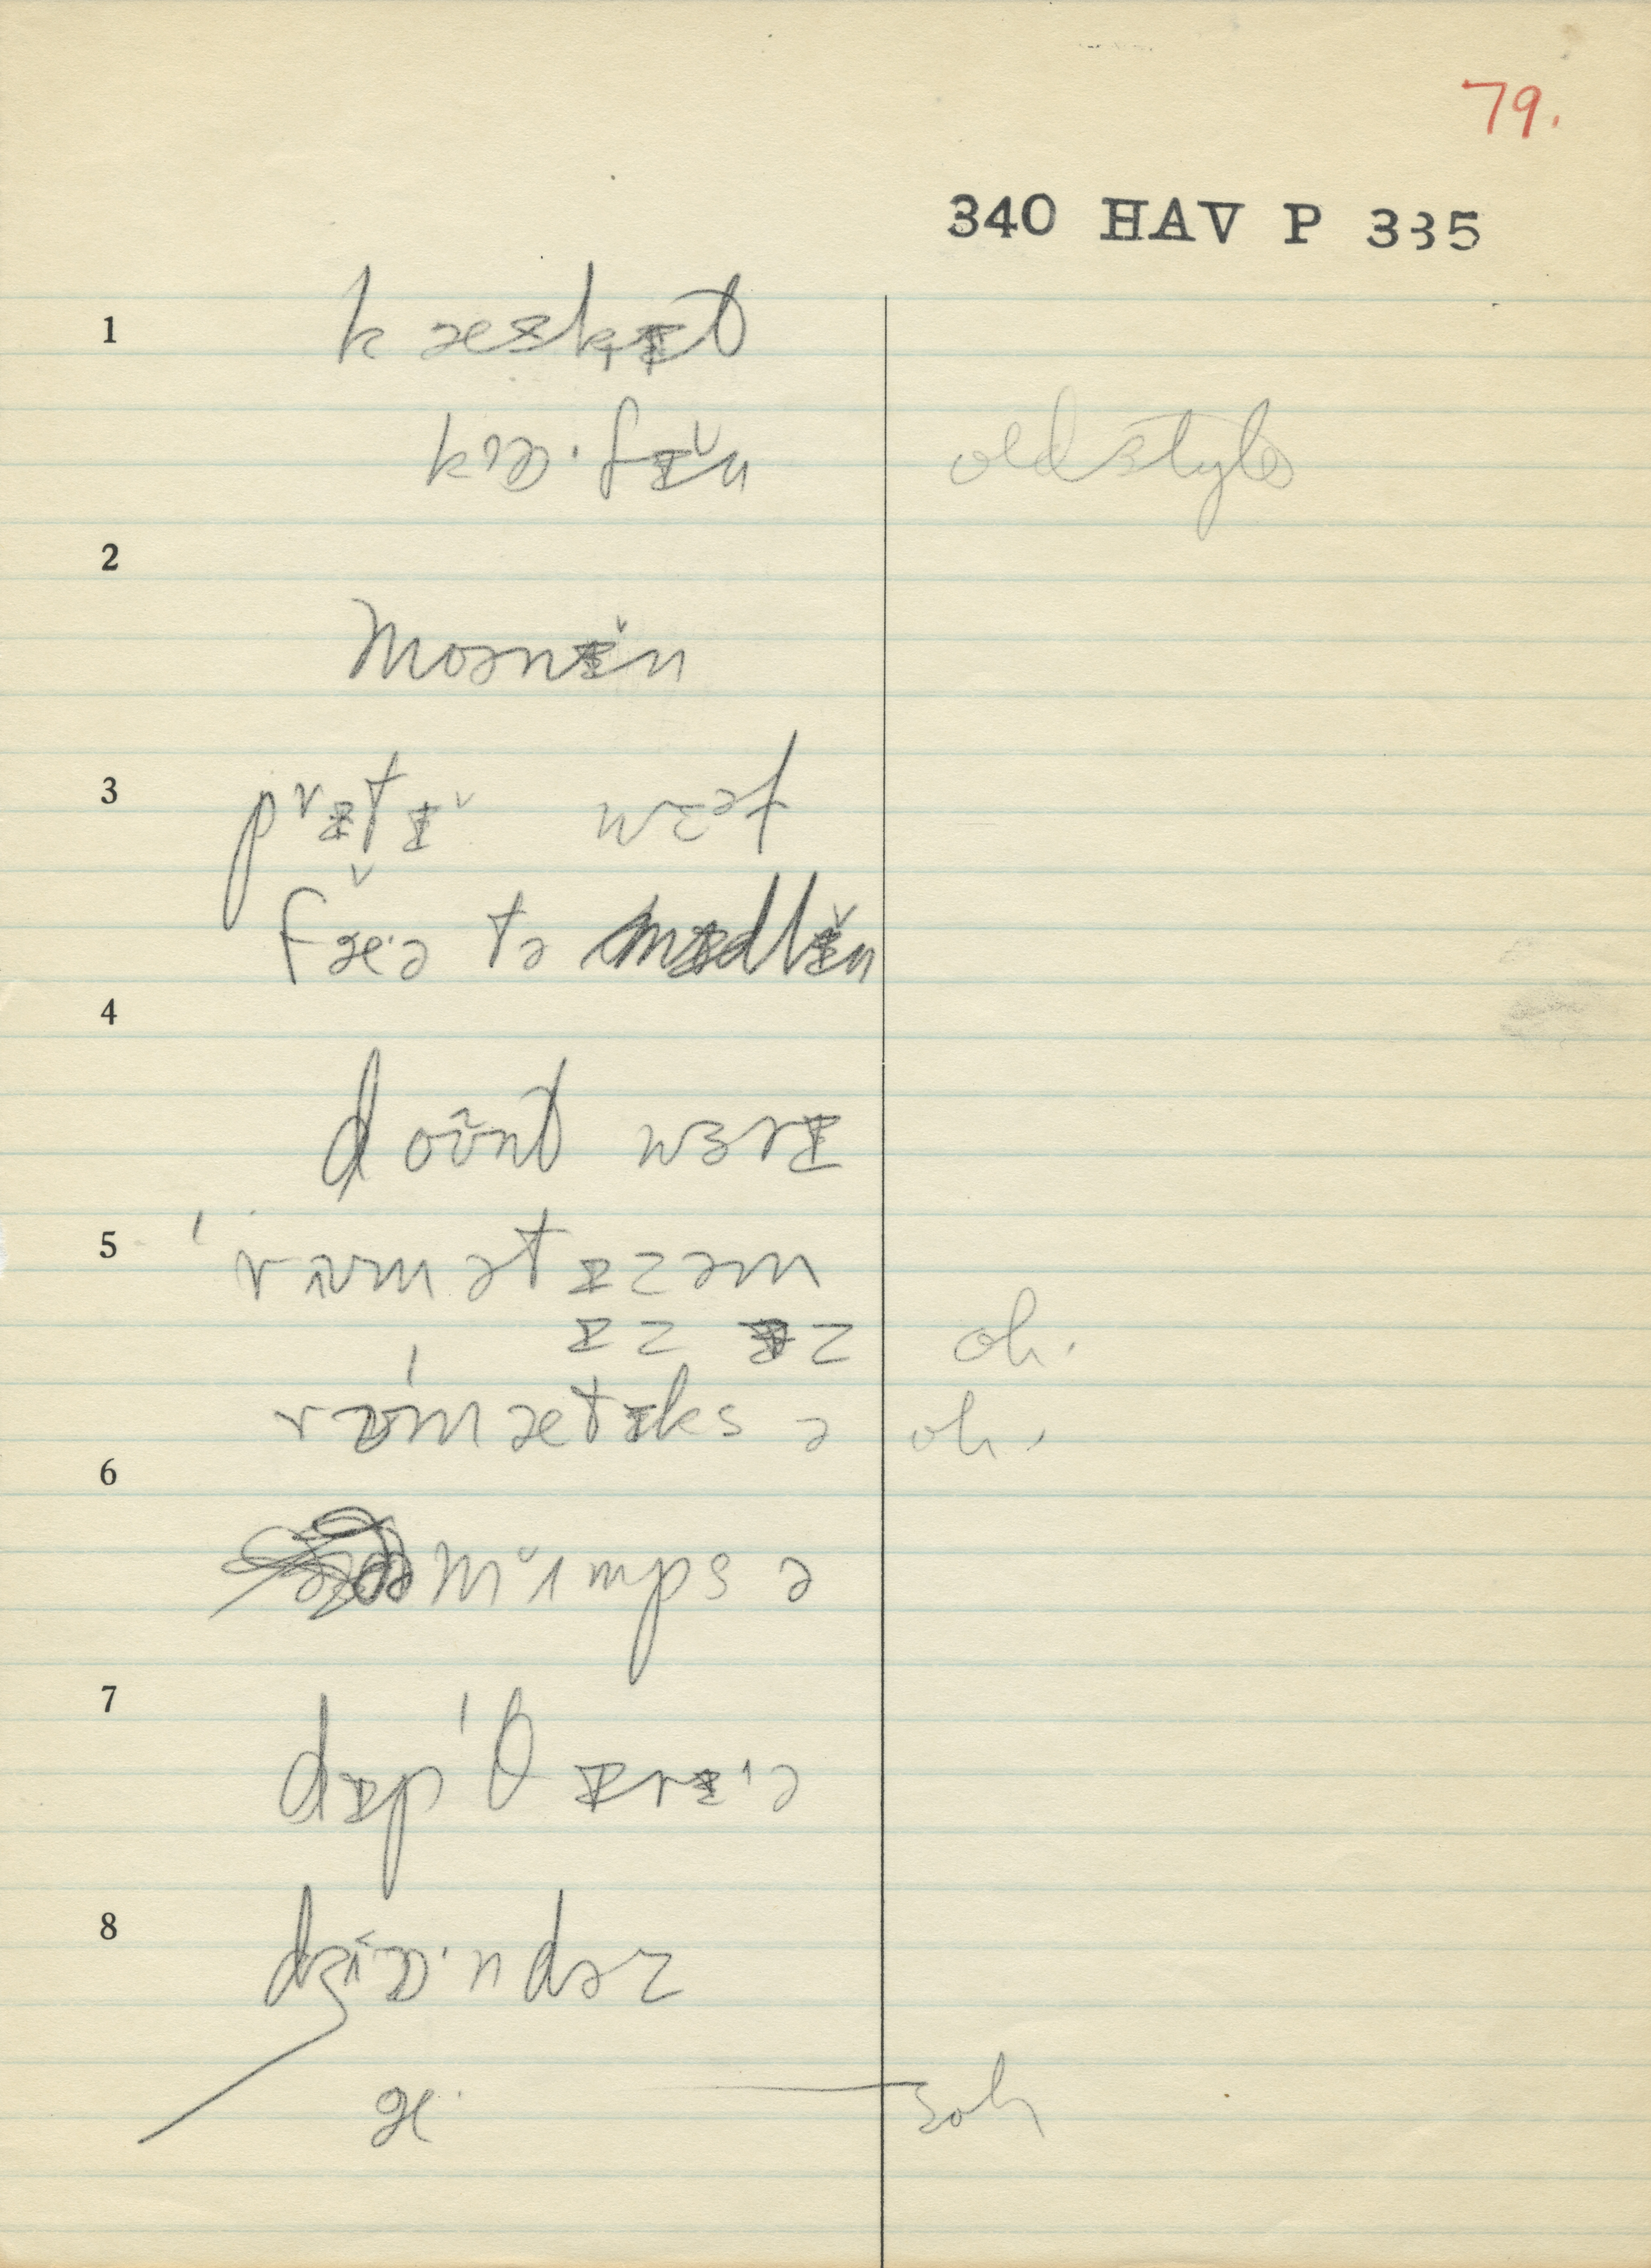 79.
340 HAV P 335
1 kæskɪt
kɒ·fɪ̆n old style
2
mɔənɪ̆n
3 prɪtɪ̆ wɛəl
fæ̆·ə tə mɪdlɪ̆n
4
doʊnt wɜrɪ
5 ˈrʌʊmətɪzəm
ɪz əz oh.
ˈrʊmætɪks ə oh.
6
mʌmps ə
7 dɪpˈθɪrɪ·ə
8 dʒɒ·ndəz
æ· 3 oh